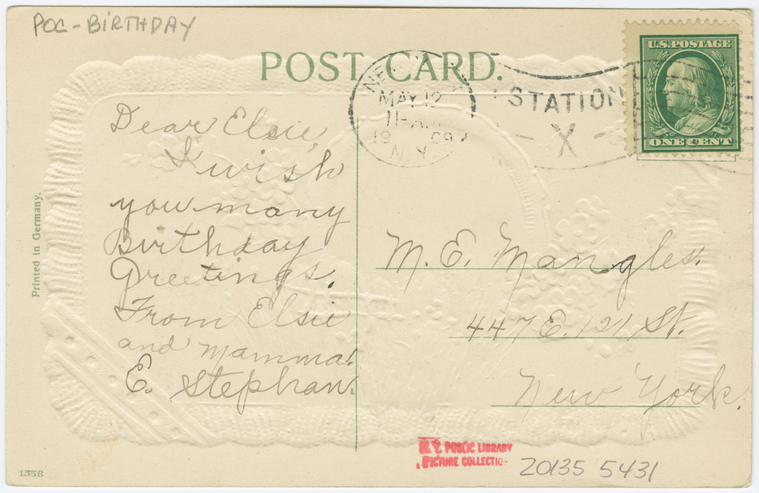 POC - BIRTHDAY
POST CARD.
U.S. POSTAGE
ONE CENT
NEW
MAY 12
11-AM
1909
N.Y.
STATION
- X -
Dear Elsie,
I wish
you many
Birthday
Greetings.
From Elsie
and Mamma.
E. Stephan.
M. E. Mangles.
447 E. 121 St.
New York.
Printed in Germany.
1358
N.Y. PUBLIC LIBRARY
PICTURE COLLECTIO
20135 5431